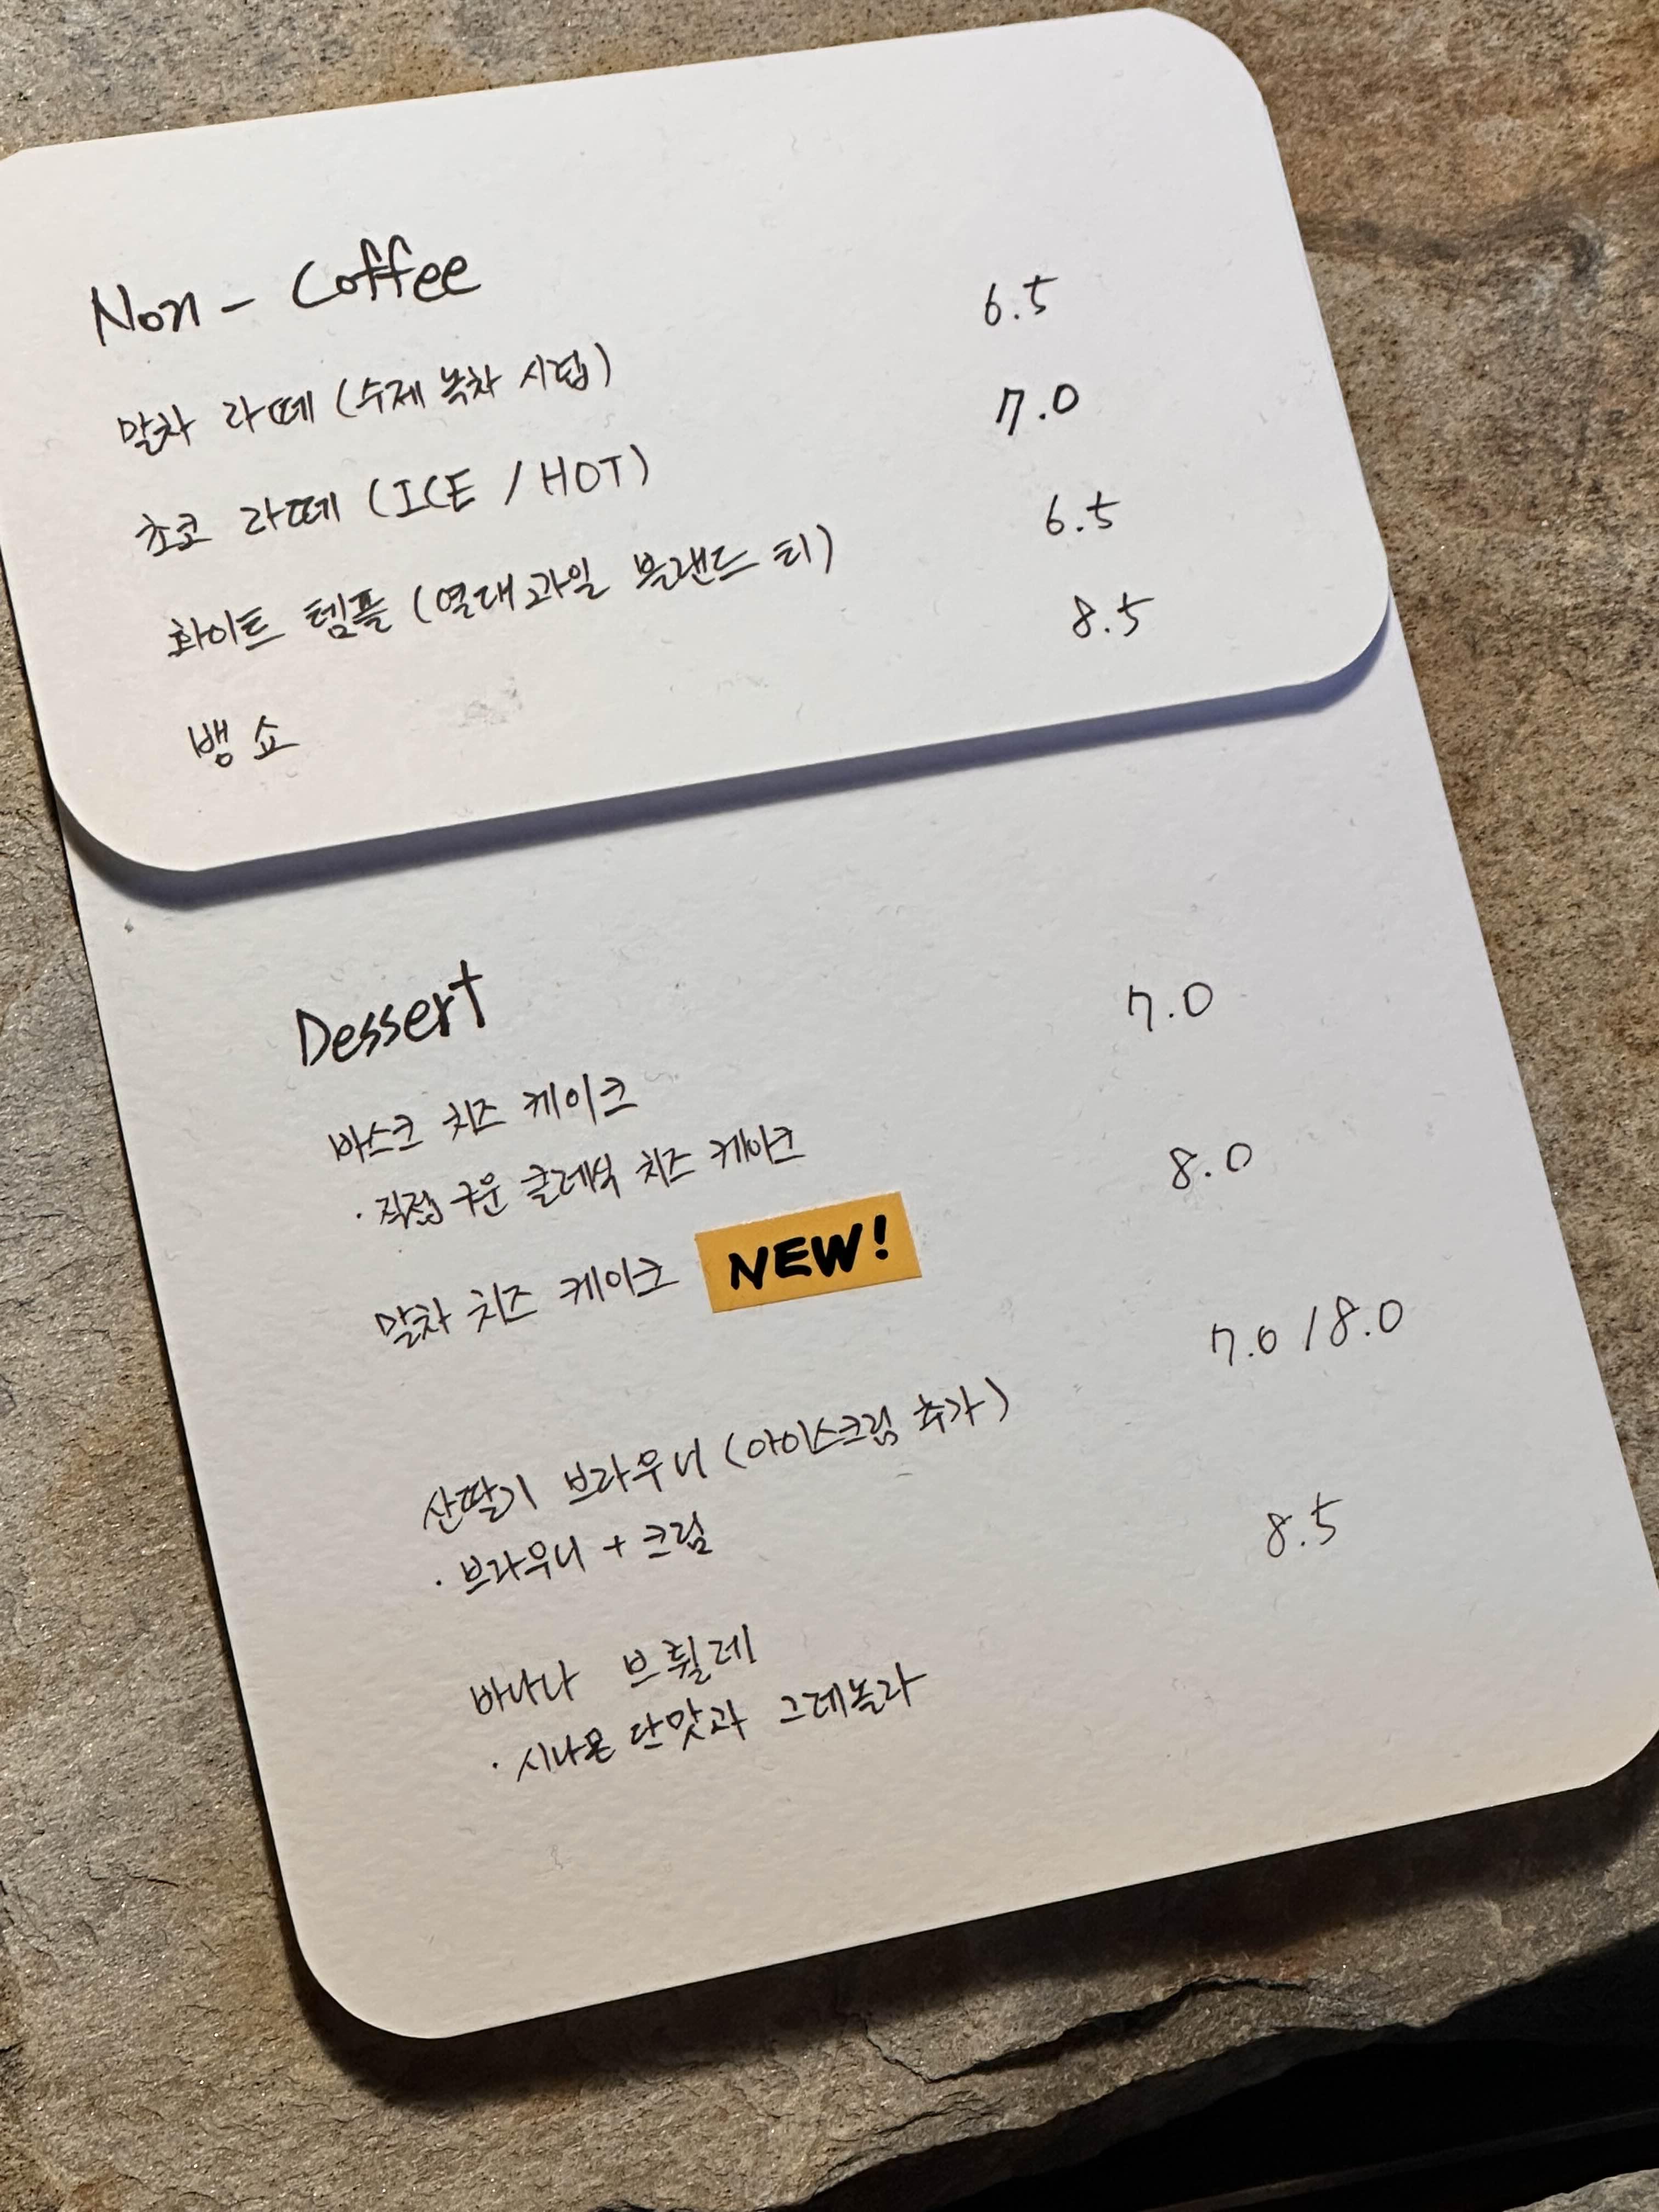 Non - Coffee
말차 라떼 (수제 녹차 시럽) 6.5
초코 라떼 (ICE / HOT) 7.0
화이트 템플 (열대과일 블랜드 티) 6.5
뱅쇼 8.5
Dessert
바스크 치즈 케이크 7.0
· 직접 구운 클레식 치즈 케이크
말차 치즈 케이크 NEW! 8.0
산딸기 브라우니 (아이스크림 추가) 7.0 / 8.0
· 브라우니 + 크림
바나나 브륄레 8.5
· 시나몬 단맛과 그레놀라